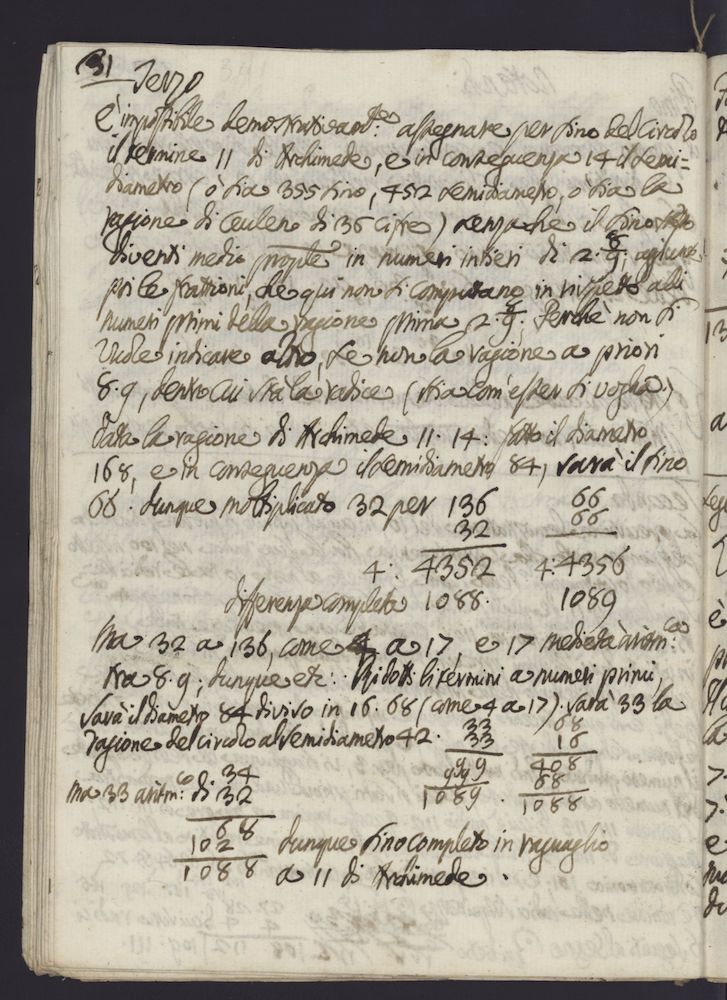 31 Terzo
È impossibile demostrativam.te assegnare per sino del Circolo
il termine 11 di Archimede, e in conseguenza 14 il semi=
diametro (ò sia 355 sino, 452 semidiametro, ò sia la
ragione di Ceulen di 36 cifre) senza che il sino
diventi medio in numeri intieri di 2. 8/9;
poi le frattioni, che qui non si computano in rispetto alli
numeri primi della ragione prima 2. 8/9; Perchè non si
vuole indicare altro, se non la ragione a priori
8. 9, dentro cui stà la radice (sia com'esser si voglia)
Data la ragione di Archimede 11. 14: fatto il diametro
168, e in conseguenza il semidiametro 84, sarà il sino
66. dunque moltiplicato 32 per 136 66
32 66
4: 4352 4: 4356
differenza completa 1088. 1089
Ma 32 a 136, come 4 a 17, e 17 medietà aritm:ca
tra 8. 9; dunque etc: Ridotti li termini a numeri primi,
sarà il diametro 84 diviso in 16. 68 (come 4 a 17). sarà 33 la
ragione del circolo al semidiametro 42. 33 68
33 16
99 408
99 68
1089 . 1088
Ma 33 aritm:co di 34
32
68
102
1088
dunque sino completo in raguaglio
a 11 di Archimede.